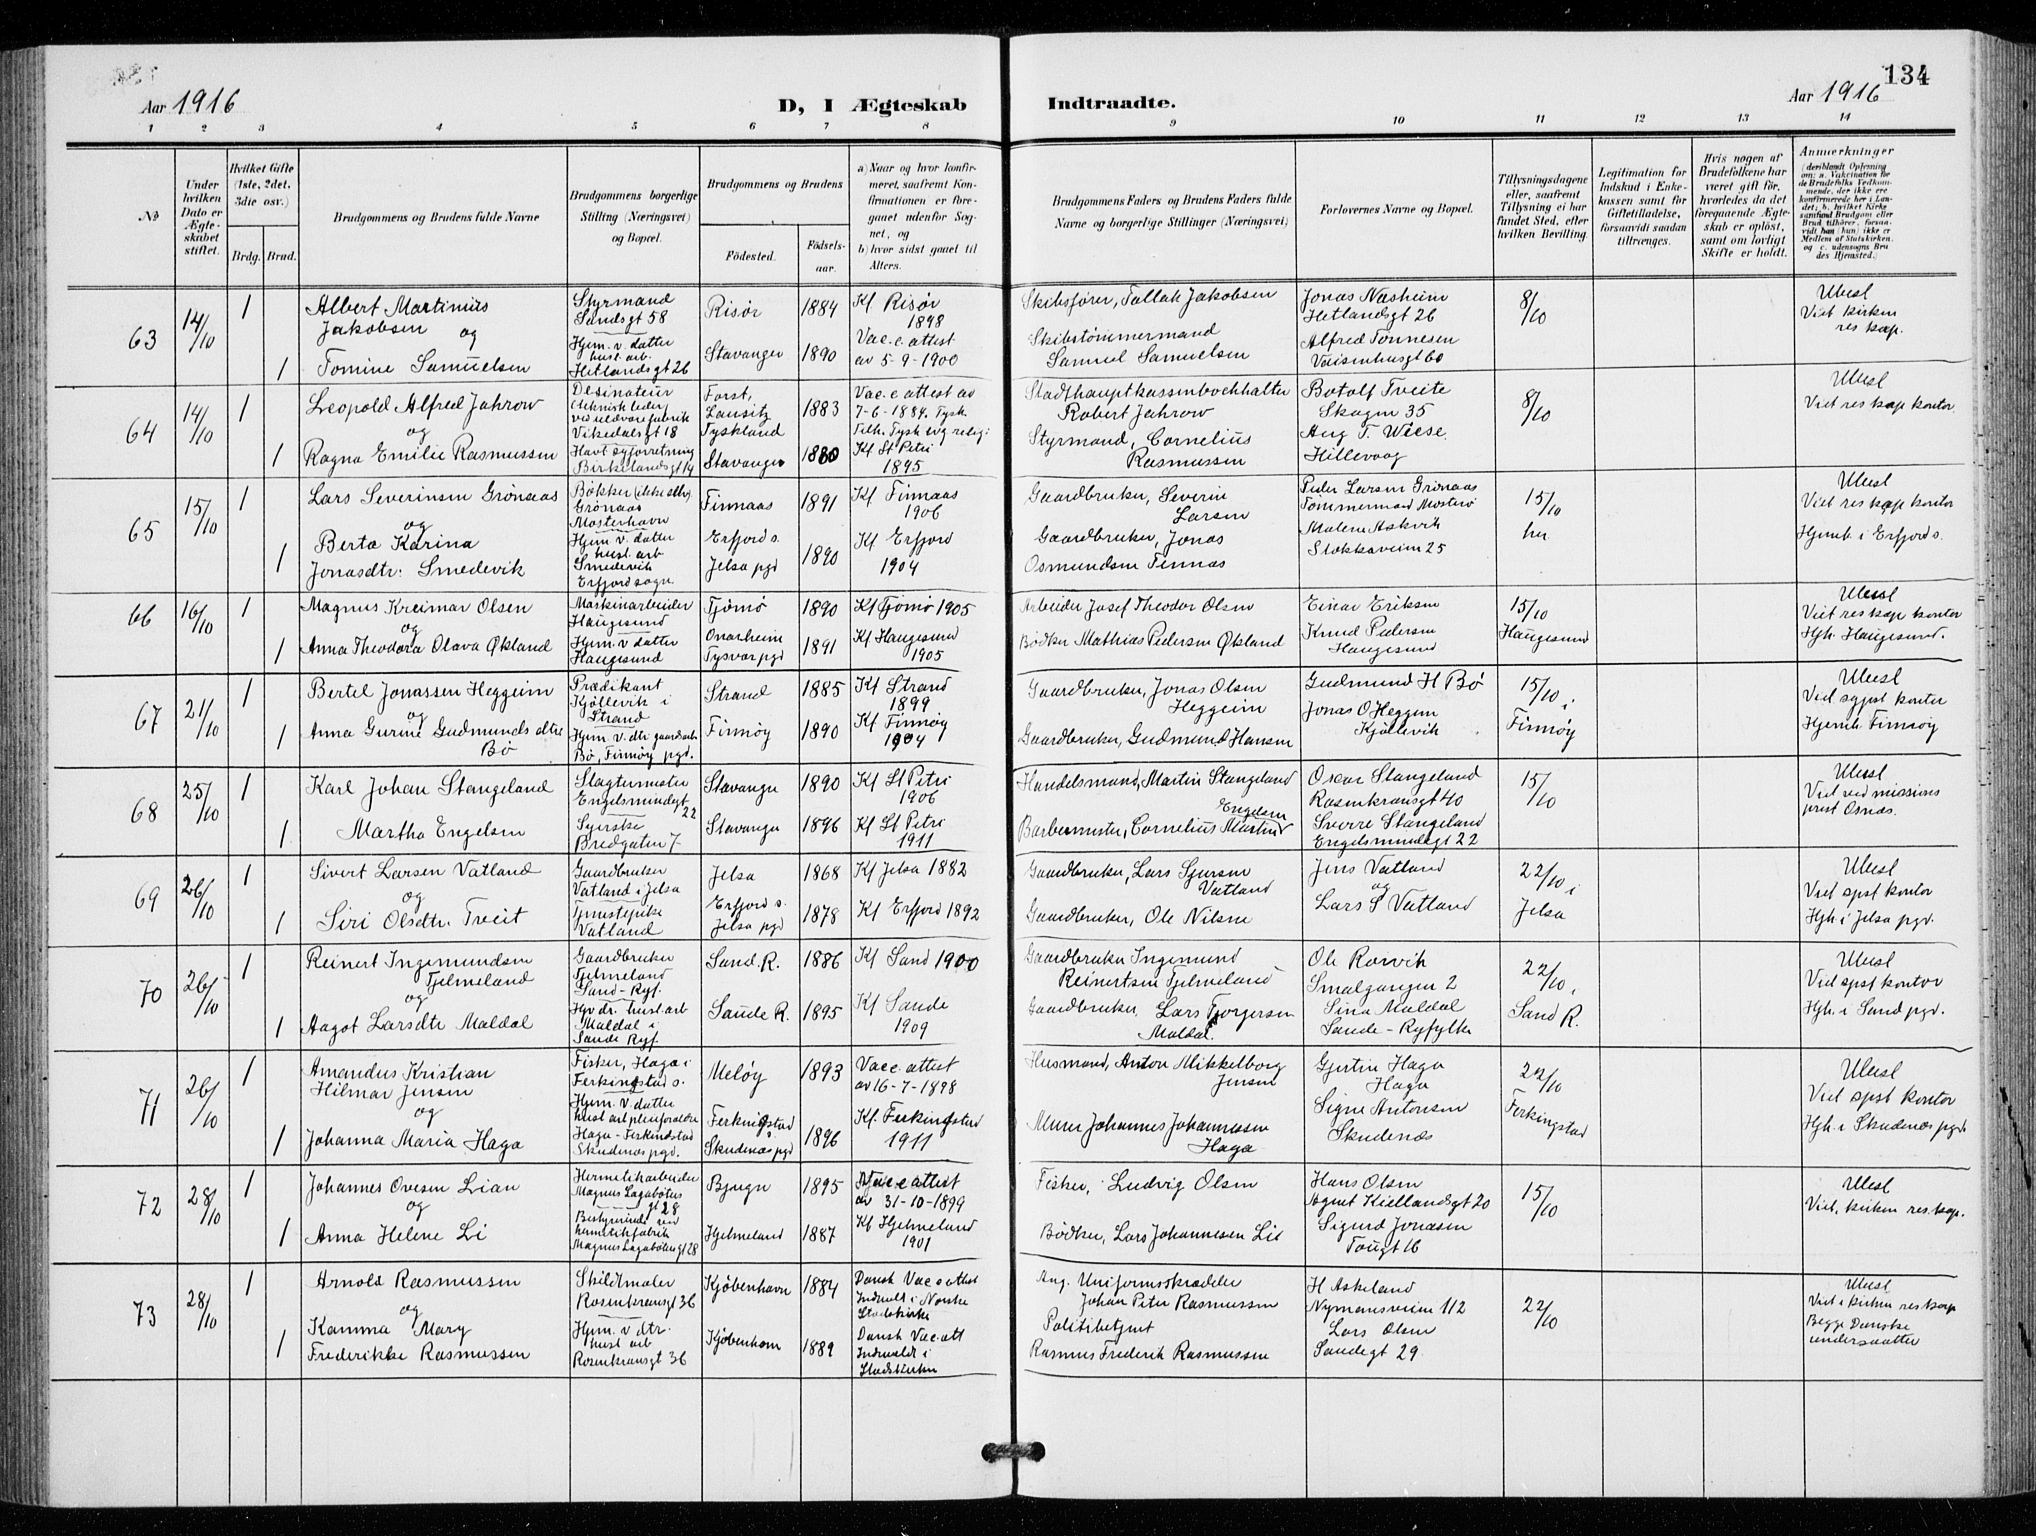 134
Aar 1916
D, I Ægteskab Indtraadte.
Aar 1916
1 2 3 4 5 6 7 8 9 10 11 12 13 14
№
Under hvilken Dato er Ægteskabet stiftet.
Hvilket Gifte (1ste, 2det, 3die osv.)
Brdg. Brud.
Brudgommens og Brudens fulde Navne
Brudgommens borgerlige Stilling (Næringsvei) og Bopæl.
Brudgommens og Brudens
Födested.
Födselsaar.
a) Naar og hvor konfirmeret, saafremt Konfirmationen er foregaaet udenfor Sognet, og
b) hvor sidst gaaet til Alters.
Brudgommens Faders og Brudens Faders fulde Navne og borgerlige Stillinger (Næringsvei)
Forlovernes Navne og Bopæl.
Tillysningsdagene eller, saafremt Tillysning ei har fundet Sted, efter hvilken Bevilling.
Legitimation for Indskud i Enkekassen samt for Giftetilladelse, forsaavidt saadan tiltrænges.
Hvis nogen af Brudefolkene har været gift för, hvorledes da det foregaaende Ægteskab er oplöst, samt om lovligt Skifte er holdt.
Anmerkninger (deriblandt Oplysning om: a. Vakcination for de Brudefolks Vedkommende, der ikke ere konfirmerede her i Landet; b. hvilket Kirkesamfund Brudgom eller Brud tilhörer, forsaavidt han (hun) ikke er Medlem af Statskirken, og c. udensogns Brudes Hjemsted.)
63
14/10
1
Albert Martinius Jakobsen
og
1
Tomine Samuelsen
Styrmand
Sandsgt 58
Hjem. v. datter
hust. arb.
Hetlandsgt 26
Risør 1884
Stavanger 1890
Kf Risør
1898
Vac.c. attest
av 5-9-1900
Skibsfører, Tallak Jakobsen
Skibstømmermand
Samuel Samuelsen
Jonas Næsheim
Hetlandsgt 26
Alfred Tønnesen
Vaisenhusgt 60
8/10
Ubesl
Viet kirken
res kap.
64
14/10
1
Leopold Alfred Jahrow
og
1
Ragna Emilie Rasmussen
Desinateur
teknisk leder
ved uldvarefabrik
Vikedalsgt 18
Havt syforretning
Birkelandsgt 14
Forst,
Lausitz
Tyskland
1883
Stavanger 1880
Vac.c attest av
7-6-1884. Tysk.
Tilh. Tysk evg relig:
Kf St Petri
1895
Stadthauptkassenbuchhalter
Robert Jahrow
Styrmand, Cornelius
Rasmussen
Botolf Tveite
Skagen 35
Aug T. Wiese.
Hillevaag
8/10
Ubesl
Viet res kap kontor
65
15/10
1
Lars Severinsen Grønaas
og
1
Berta Karina
Jonasdtr. Smedevik
Bøkker
Grønaas
Mosterhavn
Hjem. v. datter
hust. arb
Smedevik
Erfjord sogn.
Finnaas 1891
Erfjord s.
Jelsa pgd 1890
Kf Finnaas
1906
Kf Erfjord
1904
Gaardbruker, Severin
Larsen
Gaardbruker, Jonas
Osmundsen Finnas
Peder Larsen Grønaas
Tømmermand Mosterø
Malene Askvik
Stokkaveien 25
15/10
her
Ubesl
Viet res kap kontor
Hjemh. i Erfjord s.
66
16/10
1
Magnus Kreimar Olsen
og
1
Anna Theodora Olava Økland
Maskinarbeider
Haugesund
Hjem. v datter
Haugesund
Tjømø 1890
Onarheim
Tysvær pgd 1891
Kf Tjømø 1905
Kf Haugesund
1905
Arbeider Josef Theodor Olsen
Bødker Mathias Pedersen Økland
Einar Eriksen
Knud Pedersen
Haugesund
15/10
Haugesund
Ubesl
Viet res kap kontor
Hjh. Haugesund.
67
21/10
1
Bertel Jonassen Heggeim
og
1
Anna Gurine Gudmundsdtr
Bø
Prædikant
Kjøllevik i
Strand
Hjem. v. dtr gaardsarb
Bø, Finnøy pgd.
Strand 1885
Finnøy 1890
Kf Strand
1899
Kf Finnøy
1904
Gaardbruker, Jonas Olsen
Heggeim
Gaardbruker, Gudmund Hansen
Gudmund H Bø
Jonas O Heggem
Kjøllevik
15/10 i
Finnøy
Ubesl
Viet sogpst kontor
Hjemh. Finnøy
68
25/10
1
Karl Johan Stangeland
1
Martha Engelsen
Slagtermester
Engelsmindegt
22
Syerske
Bredgaten 7
Stavanger 1890
Stavanger 1896
Kf St Petri
1906
Kf St Petri
1911
Handelsmand, Martin Stangeland
Engelsen
Barbermester, Cornelius Martin
Oscar Stangeland
Rosenkransgt 40
Sverre Stangeland
Engelsmindegt 22
15/10
Ubesl
Viet ved missions
prest Osnæs.
69
26/10
1
Sivert Larsen Vatland
og
1
Siri Olsdtr. Tveit
Gaardbruker
Vatland i Jelsa
Tjenestepike
Vatland
Jelsa 1868
Erfjord s.
Jelsa pgd 1878
Kf Jelsa 1882
Kf Erfjord 1892
Gaardbruker, Lars Sjursen
Vatland
Gaardbruker, Ole Nilsen
Jens Vatland
og
Lars S Vatland
22/10 i
Jelsa
Ubesl
Viet spst kontor
Hjh i Jelsa pgd.
70
26/10
1
Reinert Ingemundsen
Tjelmeland
og
1
Aagot Larsdtr Maldal
Gaardbruker
Tjelmeland
Sand-Ryf.
Hjv dr. hust. arb
Maldal i
Saude Ryf.
Sand. R. 1886
Saude R. 1895
Kf Sand 1900
Kf Saude
1909
Gaardbruker Ingemund
Reinertsen Tjelmeland
Gaardbruker, Lars Torgersen
Maldal.
Ole Rørvik
Smalgangen 2
Sina Maldal
Saude-Ryfylke
22/10,
Sand R.
Ubesl
Viet spst kontor
Hjh. i Sand pgd.
71
26/10
1
Amandus Kristian
Hilmar Jensen
og
1
Johanna Maria Haga
Fisker, Haga i
Ferkingstad s.
Hjem. v datter
hust arb pleieforældre
Haga-Ferkindstad
Skudenæs pgd.
Meløy 1893
Ferkingstad s
Skudenæs pgd 1896
Vac.c. attest
av 16-7-1898
Kf. Ferkingstad
1911
Husmand, Anton Mikkelborg
Jensen
Murer Johannes Johannessen
Haga
Gjertin Haga
Haga
Signe Antonsen
Skudenæs
22/10
Ferkingstad
Ubesl
Viet spst kontor
Hjh. i Skudenæs pgd.
72
28/10
1
Johannes Ovesen Lian
og
1
Anna Helene Li
Hermetikarbeider
Magnus Lagabøtes
gt 28
Bestyrerinde ved
hermetikfabrik
Magnus Lagabøtesgt 28
Bjugn 1895
Hjelmeland 1887
Vac.c attest
av 31-10-1899
Kf Hjelmeland
1901
Fisker, Ludvig Olsen
Bødker, Lars Johannesen Lie
Hans Olsen
Agnet Kiellandsgt 20
Sigurd Jonasen
Tougt 16
15/10
Ubesl
Viet, kirken res. kap.
73
28/10
1
Arnold Rasmussen
og
1
Kamma Mary
Frederikke Rasmussen
Skildtmaler
Rosenkransgt 36
Hjem. v dtr.
hust arb
Rosenkransgt 36
Kjøbenhavn 1884
Kjøbenhavn 1889
Dansk Vac.c attest
Indmeldt i Norske
Statskirke
Dansk Vac. att
Indmeldt i
Statskirken
Aug. Uniformsskrædder
Johan Peter Rasmussen
Politibetjent
Rasmus Frederik Rasmussen
H Askeland
Nymansveien 112
Lars Olsen
Sandegt 29
22/10
Ubesl
Viet i kirken res kap
Begge Danske
undersaatter